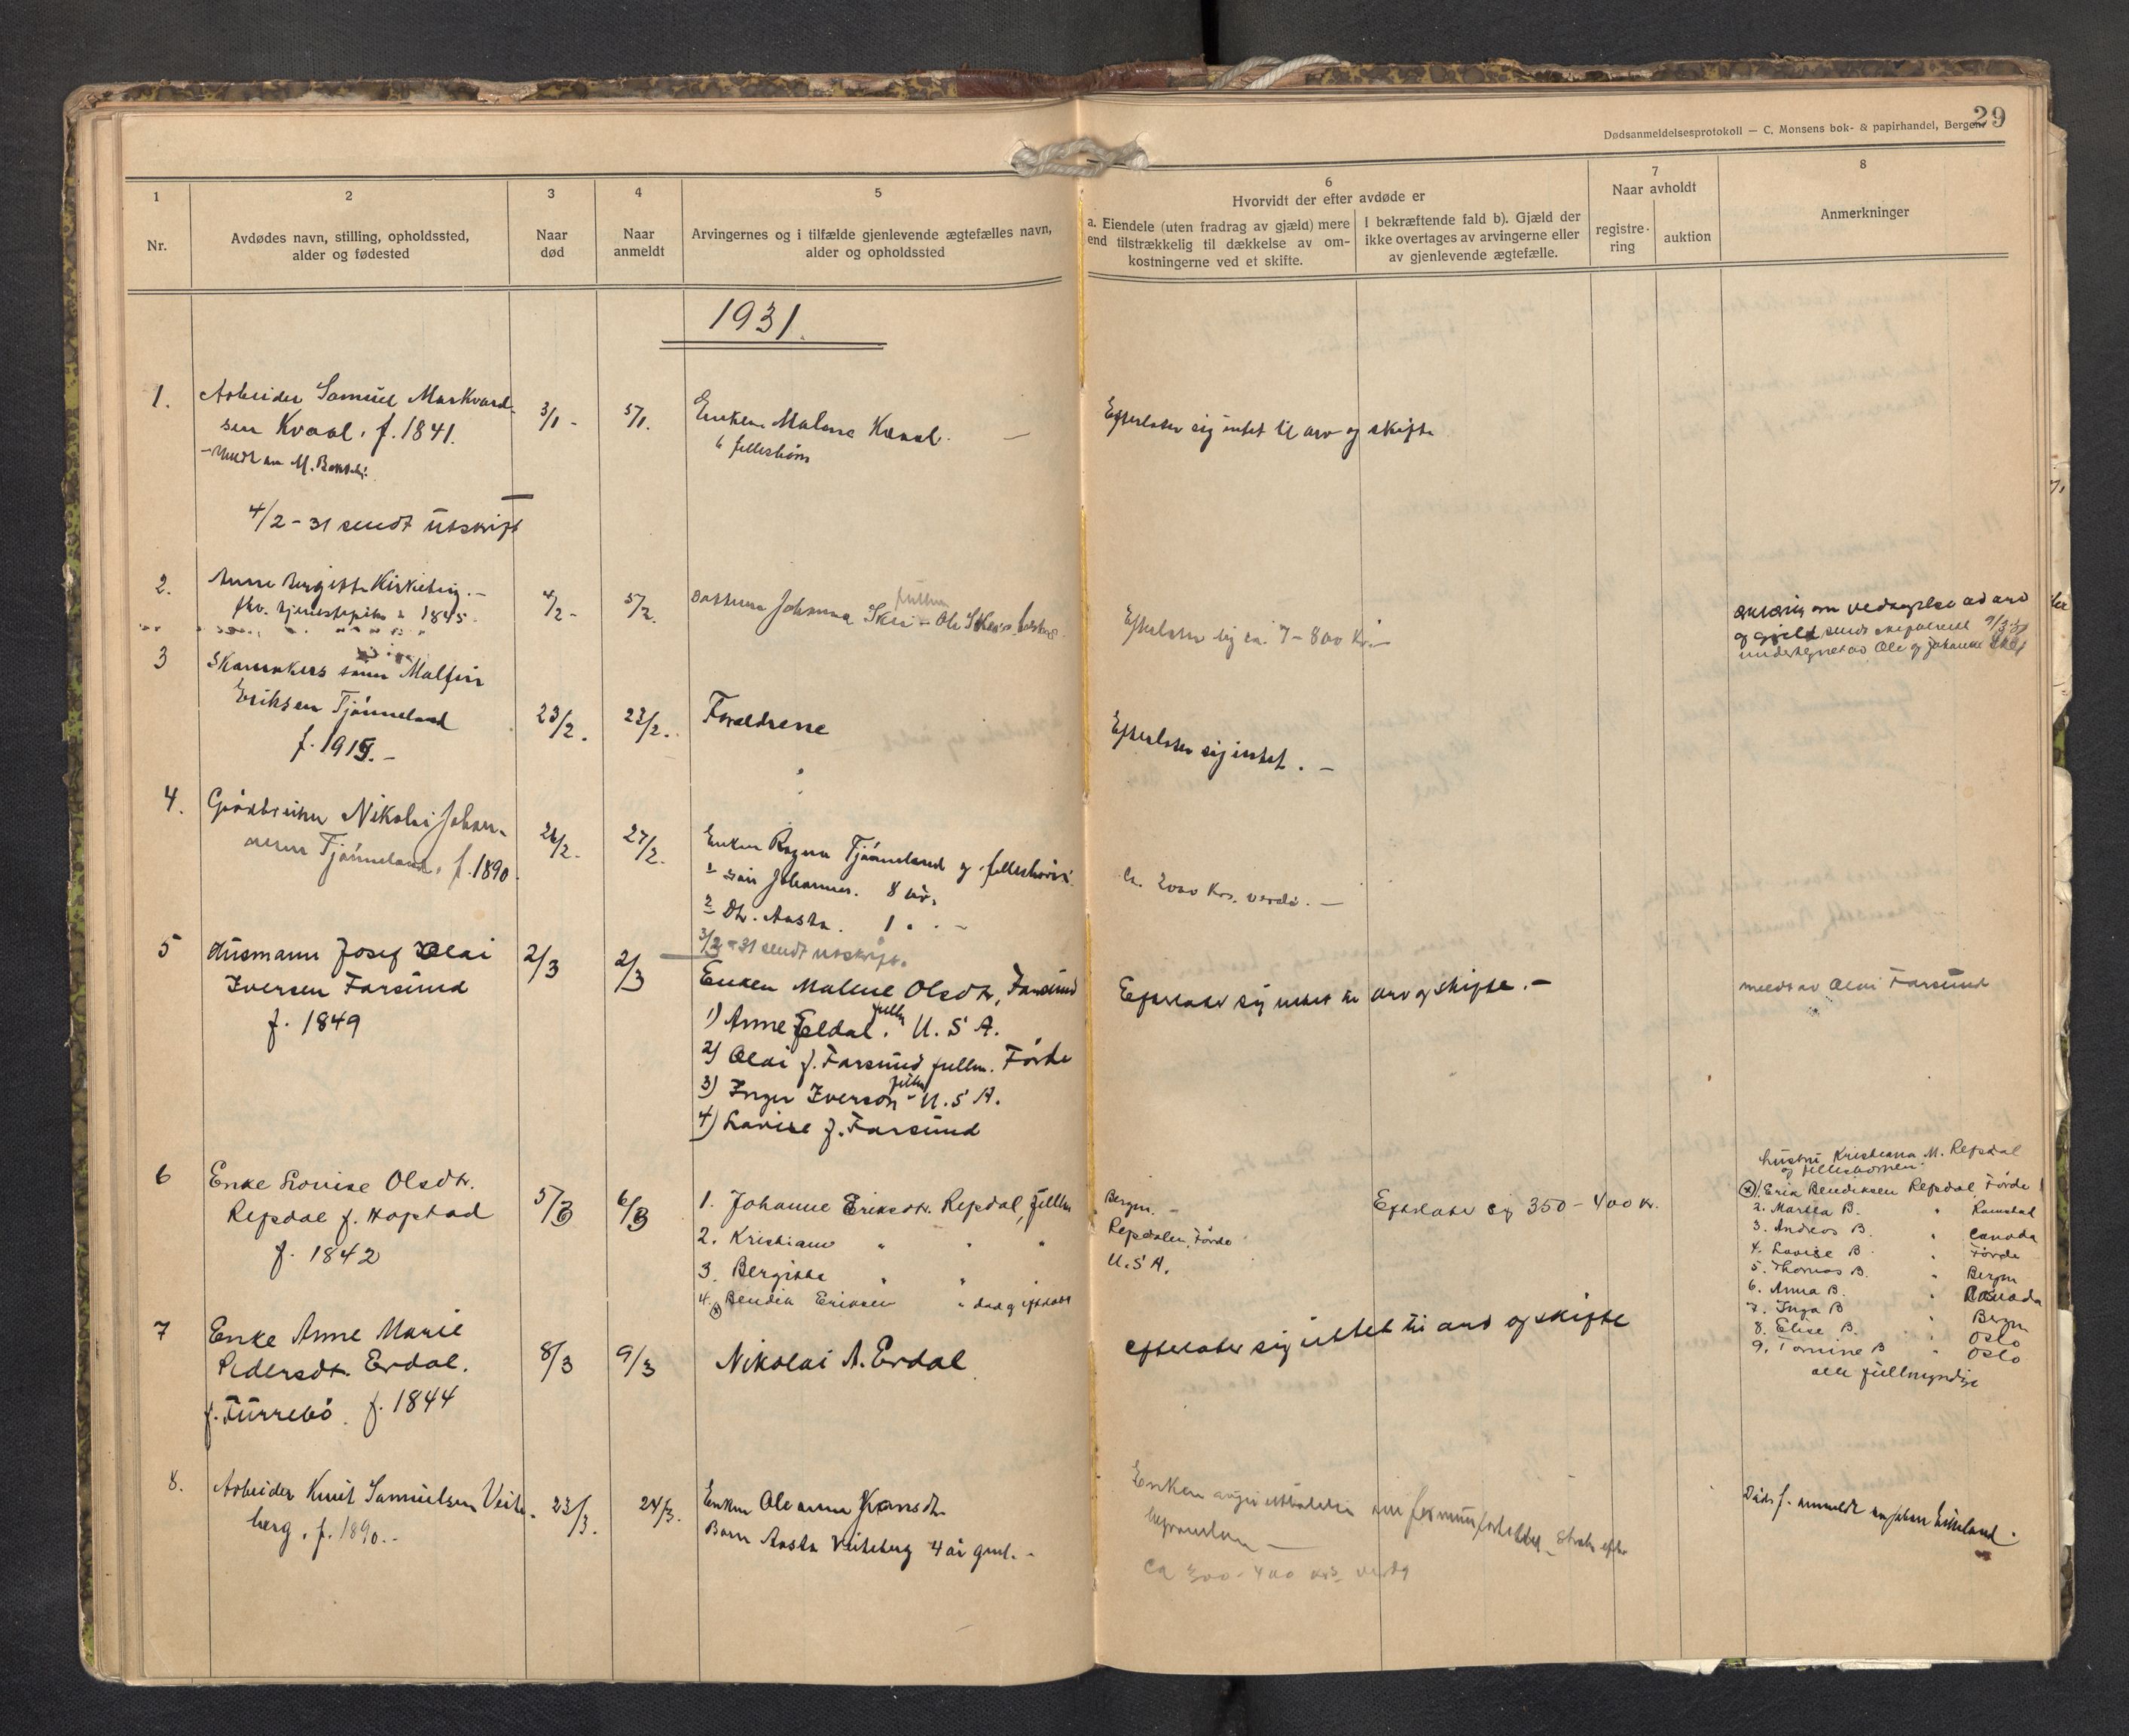 29
Dødsanmeldelsesprotokoll — C. Monsens bok- & papirhandel, Bergen
1
Nr.
2
Avdødes navn, stilling, opholdssted,
alder og fødested
3
Naar
død
4
Naar
anmeldt
5
Arvingernes og i tilfælde gjenlevende ægtefælles navn,
alder og opholdssted
6
Hvorvidt der efter avdøde er
a. Eiendele (uten fradrag av gjæld) mere
end tilstrækkelig til dækkelse av om-
kostningerne ved et skifte.
I bekræftende fald b). Gjæld der
ikke overtages av arvingerne eller
av gjenlevende ægtefælle.
7
Naar avholdt
registre-
ring
auktion
8
Anmerkninger
1931.
1.
Arbeider Samuel Markvard-
sen Kvaal. f. 1841.
4/2-31 sendt utskrift
3/1 -
5/1.
Enken Malene Kvaal. —
6 fellesbørn
Efterlater sig intet til arv og skifte
2.
Anne Bergitte Kirkebig. -
fhv. tjenestepike 1845.
4/2 -
5/2.
Datteren Johanna Skei - Ole Skei
Efterlater sig ca. 7-800 Kr. -
og gjeld sendt skifterett 9/3-31
undertegnet av Ole og Johanne Skei
3
Skomakers sønn Malfin
Eriksen Tjønneland
f. 1915. -
23/2.
23/2.
Foreldrene
Efterlater sig intet. -
4.
Gårdbruker Nikolai Johan-
nesen Tjønneland, f. 1890.
26/2.
27/2.
Enken Ragna Tjønneland og fellesbørn
1 søn Johannes. 8 år.
2 Dtr. Aasta. 1 " -
3/3-31 sendt utskrift.
Ca. 2000 Krs. verdi. —
5
Husmann Josef Olai
Iversen Farsund
f. 1849
2/3
2/3
Enken Malene Olsdtr, Farsund
1) Anne Eeldal. fullm U.S.A.
2) Olai J. Farsund fullm. Førde
3) Inger Iverson fullm - U.S.A.
4) Lovise J. Farsund
Efterlater sig intet til arv og skifte. -
meldt av Olai Farsund
6
Enke Lovise Olsdtr.
Repdal f. Hopstad
f. 1842
5/3
6/3
1. Johanne Eriksdtr. Repdal, fullm
2. Kristiane " " "
3. Bergitte " "
4. Bendik Eriksen " død og efterlatt
Bergen. -
Repdalen, Førde
U.S.A.
Efterlater sig 350-400 kr.
hustru Kristiana M. Repdal
og fellesbørnene:
1. Erik Bendiksen Repdal, Førde
2. Martha B. " Ramstad
3. Andreas B. " Canada
4. Lovise B. " Førde
5. Thomas B. " Bergen
6. Anna B. " Canada
7. Inga B " Bergen
8. Elise B. " Oslo
9. Tomine B " Oslo
alle fullmyndige
7
Enke Anne Marie
Pedersdtr. Erdal.
f. Furrebø. f. 1844
8/3
9/3
Nikolai A. Erdal
efterlater sig intet til arv og skifte
8.
Arbeider Knut Samuelsen Veite-
berg, f. 1890. -
23/3.
24/3.
Enken Oleanna Hansdtr.
Barn Aasta Veiteberg 4 år gml. -
Enken avgir uttalelse om straks efter
begravelsen —
Ca 300-400 krs verdi
Dødsf. anmeldt av Johan